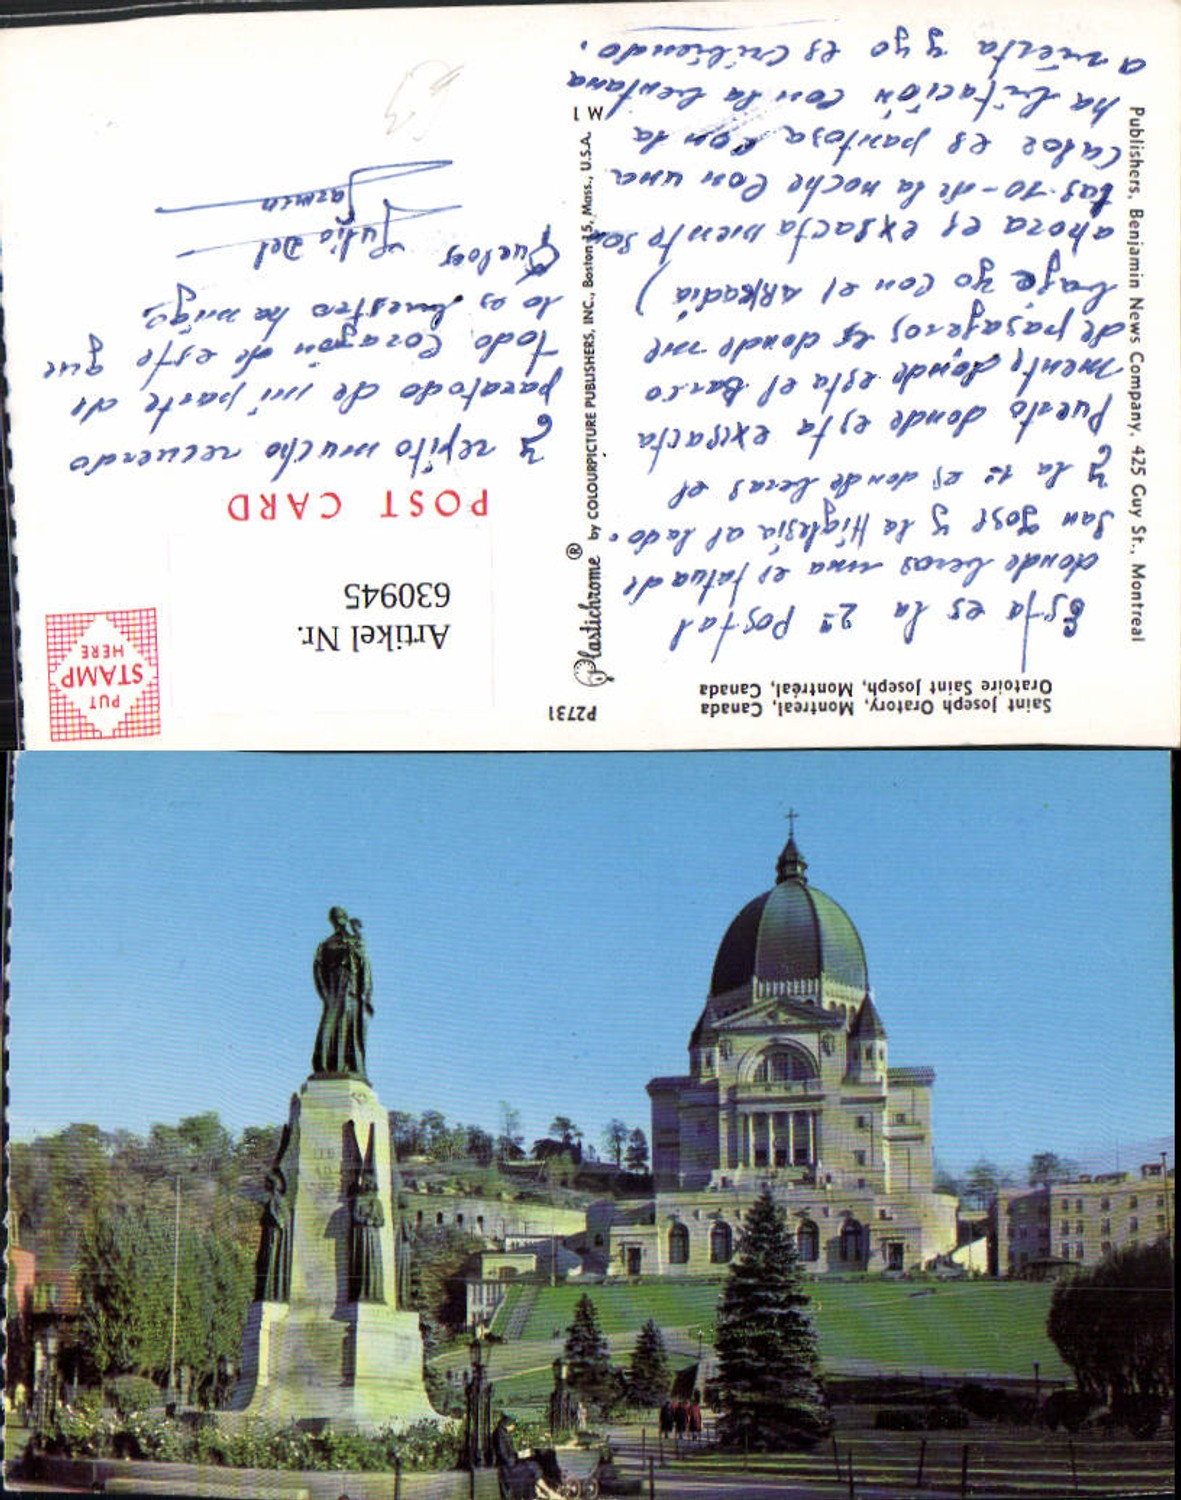 Saint Joseph Oratory, Montreal, Canada
Oratoire Saint Joseph, Montréal, Canada
P2731
Esta es la 2ª Postal
donde beras una estatua de
San José y la Higlesia al lado.
y la 1ª es donde beras el
Puerto donde esta exsacta
mente donde esta el Barco
de pasageros es donde me
baje yo con el ARKadia)
ahora es exsacta mente son
las 10- de la noche con una
calor es pantosa con la
ha bitación con la bentana
a vierta y yo es cribiendo.
Publishers, Benjamin News Company, 425 Guy St., Montreal
Plastichrome ® by COLOURPICTURE PUBLISHERS, INC., Boston 15, Mass., U.S.A.
M 1
PUT
STAMP
HERE
Artikel Nr.
630945
POST CARD
y repito mucho recuerdo
paratodo de mi parte de
todo Corazon de este que
lo es buestro ha migo
Julio Del